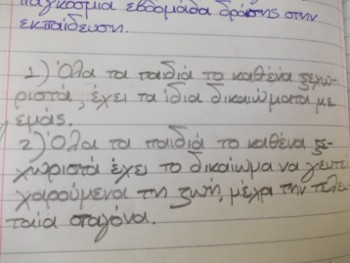 παγκόσμια εβδομάδα δράσης στην
εκπαίδευση.
1) Όλα τα παιδιά το καθένα ξεχω-
ριστά, έχει τα ίδια δικαιώματα με
εμάς.
2) Όλα τα παιδιά το καθένα ξε-
χωριστά έχει το δικαίωμα να γευτεί
χαρούμενα τη ζωή, μέχρι την τελευ-
ταία σταγόνα.